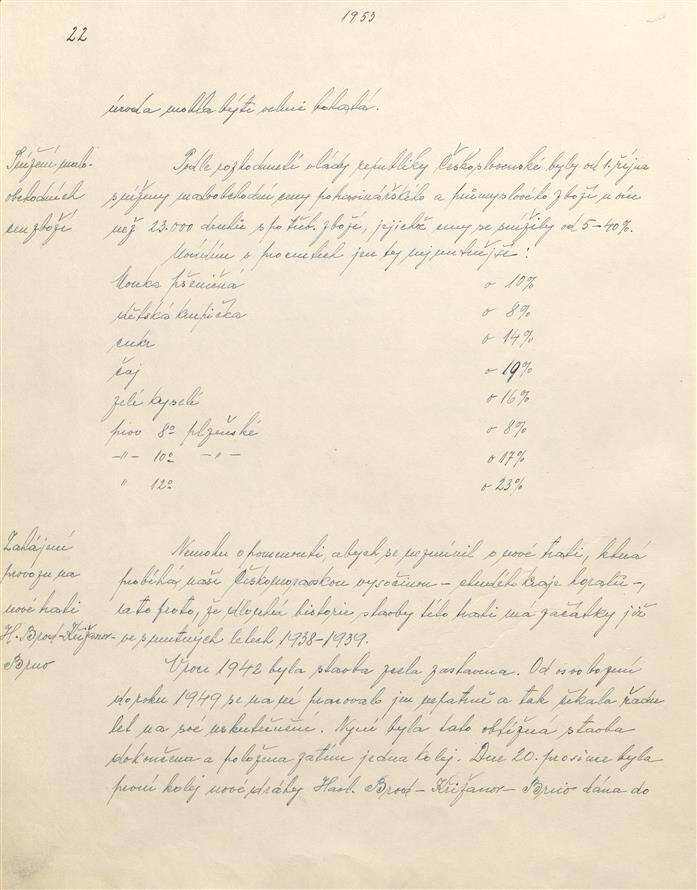 1953
22
úroda mohla býti velmi bohatá.
Snížení malo-
obchodních
cen zboží
Podle rozhodnutí vlády republiky Československé byly od 1. října
sníženy maloobchodní ceny potravinářského a průmyslového zboží u více
než 23.000 druhů spotřeb. zboží, jejichž ceny se snížily od 5-40%.
Uvádím v procentech jen ty nejnutnější:
Mouka pšeničná o 10%
dětská krupička o 8%
cukr o 14%
čaj o 19%
zelí kyselé o 16%
pivo 8° plzeňské o 8%
-"- 10° -"- o 17%
" 12° o 23%
Zahájení
provozu na
nové trati
H. Brod-Křižanov-
Brno
Nemohu opomenouti, abych se nezmínil o nové trati, která
probíhá naší Českomoravskou vysočinou - chudého kraje horalů -,
a to proto, že vlastní historie stavby této trati má začátky již
ve smutných letech 1938-1939.
V roce 1942 byla stavba zcela zastavena. Od osvobození
do roku 1949 se na ní pracovalo jen nepatrně a tak čekala řadu
let na své uskutečnění. Nyní byla tato obtížná stavba
dokončena a položena zatím jedna kolej. Dne 20. prosince byla
první kolej nové dráhy Havl. Brod - Křižanov - Brno dána do